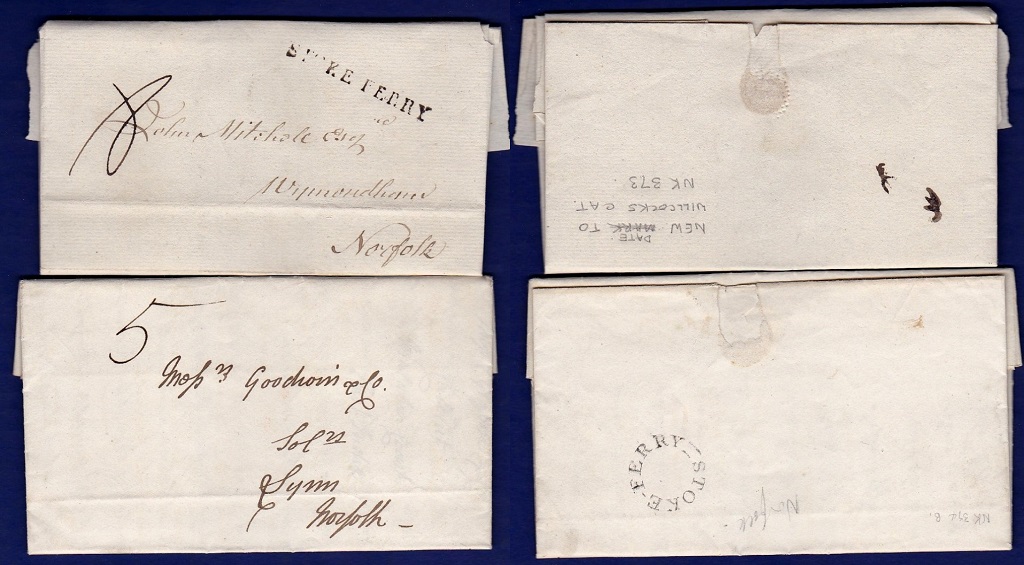 STOKE FERRY
8
John Mitchell Esqr
Wymondham
Norfolk
NK 373.
WILLCOCKS CAT.
NEW MARK TO
DATE
5
Messrs Goodwin & Co.
Solrs
Lynn
Norfolk
STOKE-FERRY
Norfolk
NK 374 B.